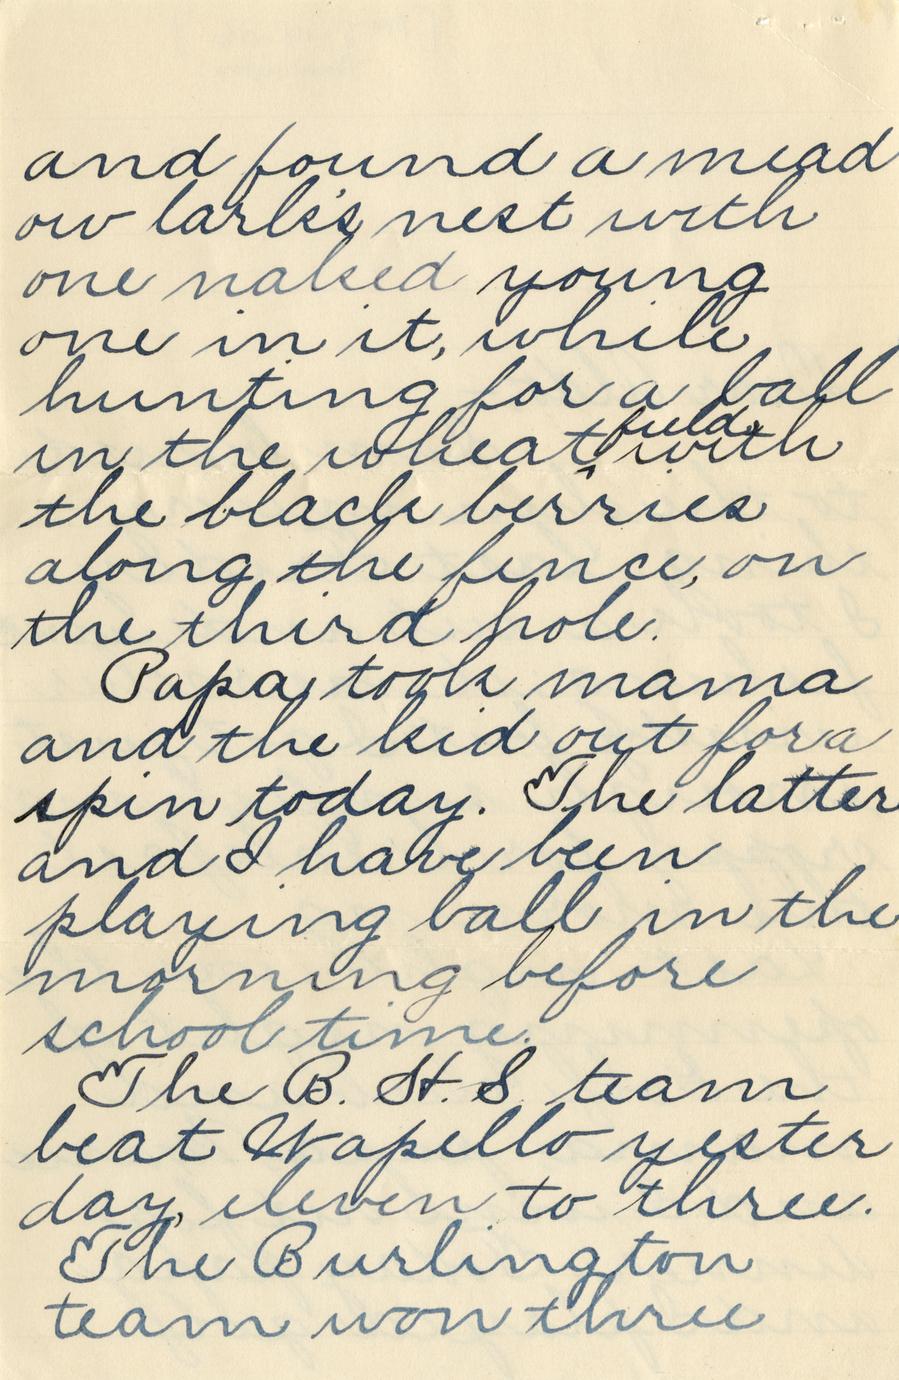 and found a mead
ow lark's nest with
one naked young
one in it, while
hunting for a ball
in the wheat field with
the black berries
along the fence, on
the third hole.
Papa took mama
and the kid out for a
spin today. The latter
and I have been
playing ball in the
morning before
school time.
The B. H. S. team
beat Wapello yester
day, eleven to three.
The Burlington
team won three